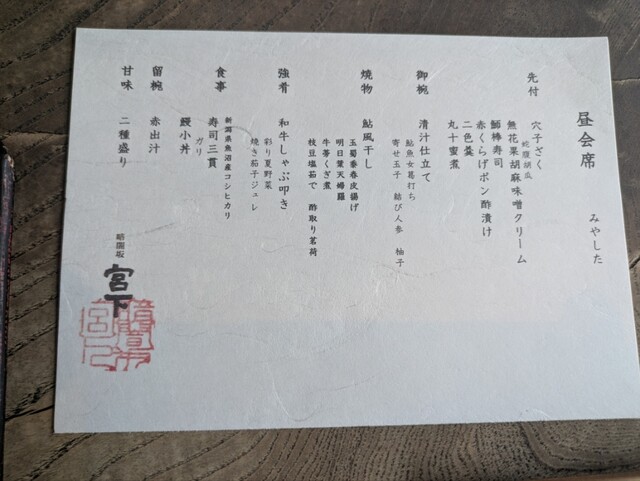 昼会席
みやした
先付
穴子ざく
蛇腹胡瓜
無花果胡麻味噌クリーム
鱧棒寿司
赤くらげポン酢漬け
二色羹
丸十蜜煮
御椀
清汁仕立て
鮎魚女葛打ち
寄せ玉子 結び人参 柚子
焼物
鮎風干し
玉蜀黍春皮揚げ
明日葉天婦羅
牛蒡くぎ煮
枝豆塩茹で 酢取り茗荷
強肴
和牛しゃぶ叩き
彩り夏野菜
焼き茄子ジュレ
食事
新潟県魚沼産コシヒカリ
寿司三貫
ガリ
鰻小丼
留椀
赤出汁
甘味
二種盛り
暗闇坂
宮下